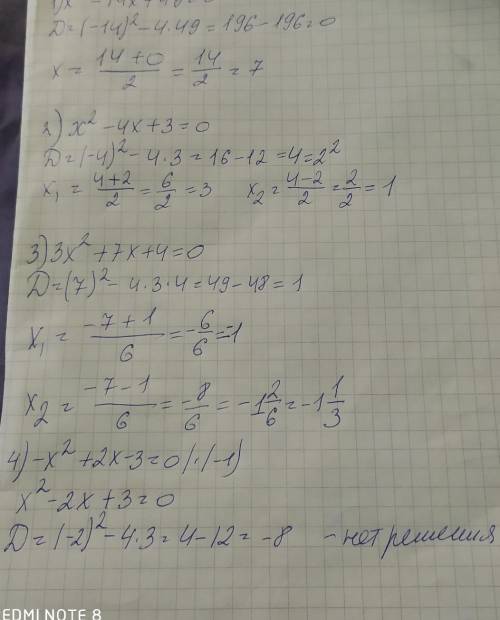 D=(-14)²-4·49=196-196=0
x = (14+0)/2 = 14/2 = 7
2) x²-4x+3=0
D=(-4)²-4·3=16-12=4=2²
x₁ = (4+2)/2 = 6/2 = 3 x₂ = (4-2)/2 = 2/2 = 1
3) 3x²+7x+4=0
D=(7)²-4·3·4=49-48=1
x₁ = (-7+1)/6 = -6/6 = -1
x₂ = (-7-1)/6 = -8/6 = -1 2/6 = -1 1/3
4) -x²+2x-3=0 /·(-1)
x²-2x+3=0
D=(-2)²-4·3=4-12=-8 - нет решения
EDMI NOTE 8